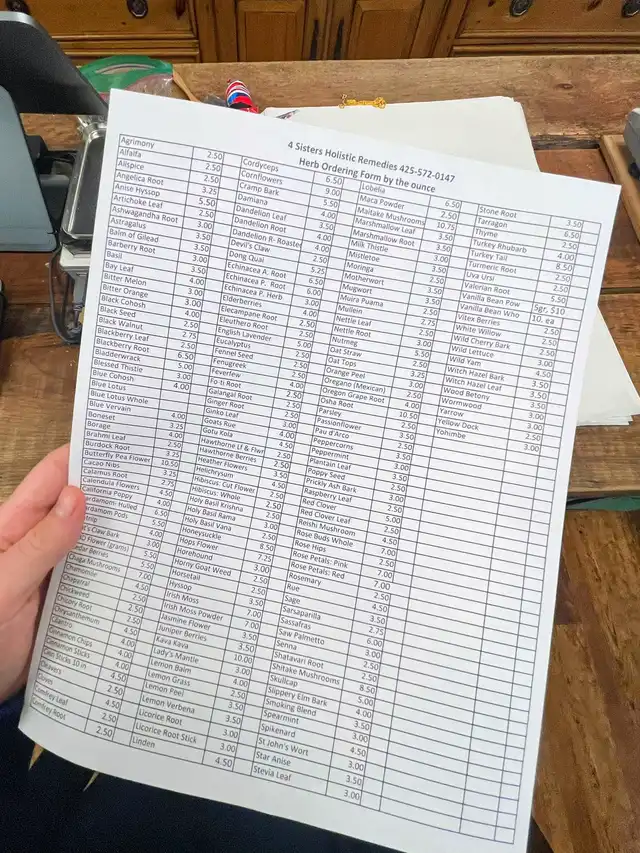 4 Sisters Holistic Remedies 425-572-0147
Herb Ordering Form by the ounce
Agrimony 2.50
Alfalfa 2.50
Allspice 2.50
Angelica Root 3.25
Anise Hyssop 5.50
Artichoke Leaf 2.50
Ashwagandha Root 3.00
Astragalus 3.50
Balm of Gilead
Barberry Root
Basil
Bay Leaf
Bitter Melon
Bitter Orange
Black Cohosh
Black Seed
Black Walnut
Blackberry Leaf
Blackberry Root
Bladderwrack
Blessed Thistle
Blue Cohosh
Blue Lotus
Blue Lotus Whole
Blue Vervain 4.00
Boneset 3.25
Borage 4.00
Brahmi Leaf 2.50
Burdock Root 3.75
Butterfly Pea Flower 10.50
Cacao Nibs 3.25
Calamus Root 2.75
Calendula Flowers 4.50
California Poppy 4.00
Cardamom- Hulled 6.50
Cardamom Pods 5.50
Catnip
Cat's Claw Bark
Flower (grams)
Cedar Berries 5.50
Chaga Mushrooms 5.50
Chamomile 7.00
Chaparral 4.50
Chickweed 2.50
Chicory Root 2.50
Chrysanthemum 2.50
Cilantro 4.50
Cinnamon Chips 4.00
Cinnamon Sticks 4.00
Cinn Sticks 10 in 4.00
Cleavers 4.50
Cloves 2.50
Comfrey Leaf 4.50
Comfrey Root 2.50
2.50
Cordyceps 6.50
Cornflowers 9.00
Cramp Bark 5.50
Damiana 4.00
Dandelion Leaf 3.50
Dandelion Root 4.00
Dandelion R- Roasted 4.00
Devil's Claw 2.50
Dong Quai 5.25
Echinacea A. Root 6.50
Echinacea P. Root 6.00
Echinacea P. Herb 3.00
Elderberries 2.50
Elecampane Root 4.00
Eleuthero Root 2.50
English Lavender 2.50
Eucalyptus 5.00
Fennel Seed 2.50
Fenugreek 2.50
Feverfew 2.50
Fo-ti Root 4.00
Galangal Root 2.50
Ginger Root 2.50
Ginko Leaf 2.50
Goats Rue 3.00
Gotu Kola 4.00
Hawthorne Lf & Flwr 4.50
Hawthorne Berries 2.50
Heather Flowers 3.50
Helichrysum 4.50
Hibiscus: Cut Flower 3.50
Hibiscus: Whole 2.50
Holy Basil Krishna 2.50
Holy Basil Rama 2.50
Holy Basil Vana 3.00
Honeysuckle 2.50
Hops Flower 8.50
Horehound 7.00
Horny Goat Weed 3.00
Horsetail 2.50
Hyssop 2.50
Irish Moss 3.50
Irish Moss Powder 7.00
Jasmine Flower 7.00
Juniper Berries 3.50
Kava Kava 3.50
Lady's Mantle 10.00
Lemon Balm 3.00
Lemon Grass 4.00
Lemon Peel 2.50
Lemon Verbena 3.50
Licorice Root 3.00
Licorice Root Stick 3.00
Linden 4.50
Lobelia 6.50
Maca Powder 2.50
Maitake Mushrooms 10.75
Marshmallow Leaf 3.50
Marshmallow Root 3.50
Milk Thistle 2.50
Mistletoe 3.00
Moringa 2.50
Motherwort 2.50
Mugwort 3.50
Muira Puama 2.50
Mullein 2.75
Nettle Leaf 2.50
Nettle Root 3.00
Nutmeg 5.50
Oat Straw 2.50
Oat Tops 3.25
Orange Peel 3.00
Oregano (Mexican) 2.50
Oregon Grape Root 4.00
Osha Root 10.50
Parsley 2.50
Passionflower 3.50
Pau d'Arco 2.50
Peppercorns 3.00
Peppermint 3.00
Plantain Leaf 3.50
Poppy Seed 2.50
Prickly Ash Bark 2.50
Raspberry Leaf 2.50
Red Clover 5.00
Red Clover Leaf 2.50
Reishi Mushroom 4.50
Rose Buds Whole 7.00
Rose Hips 2.50
Rose Petals: Pink 7.00
Rose Petals: Red 7.00
Rosemary 2.50
Rue 4.50
Sage 3.50
Sarsaparilla 2.75
Sassafras 6.00
Saw Palmetto 3.00
Senna 2.50
Shatavari Root 2.50
Shitake Mushrooms 8.50
Skullcap 5.00
Slippery Elm Bark 4.00
Smoking Blend 3.50
Spearmint 3.00
Spikenard 4.50
St John's Wort 2.50
Star Anise 3.50
Stevia Leaf 3.00
Stone Root 3.50
Tarragon 6.50
Thyme 2.50
Turkey Rhubarb 4.00
Turkey Tail 8.50
Turmeric Root 2.50
Uva Ursi 5.50
Valerian Root
Vanilla Bean Pow 5gr, $10
Vanilla Bean Who 10. ea
Vitex Berries 2.50
White Willow 2.50
Wild Cherry Bark 2.50
Wild Lettuce 3.00
Wild Yam 4.50
Witch Hazel Bark 3.50
Witch Hazel Leaf 3.50
Wood Betony 3.50
Wormwood 3.00
Yarrow 3.00
Yellow Dock 2.50
Yohimbe 3.00